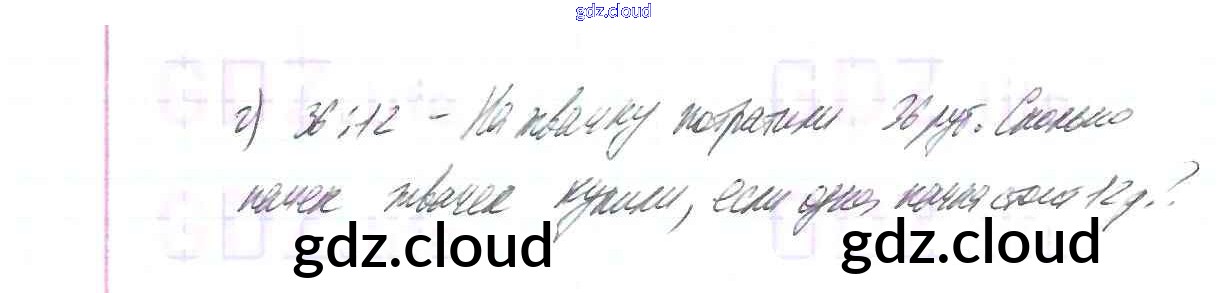 gdz.cloud
г) 36:12 - На жвачку потратили 36 руб. Сколько
пачек жвачек купили, если одна пачка стоит 12 р.?
gdz.cloud gdz.cloud